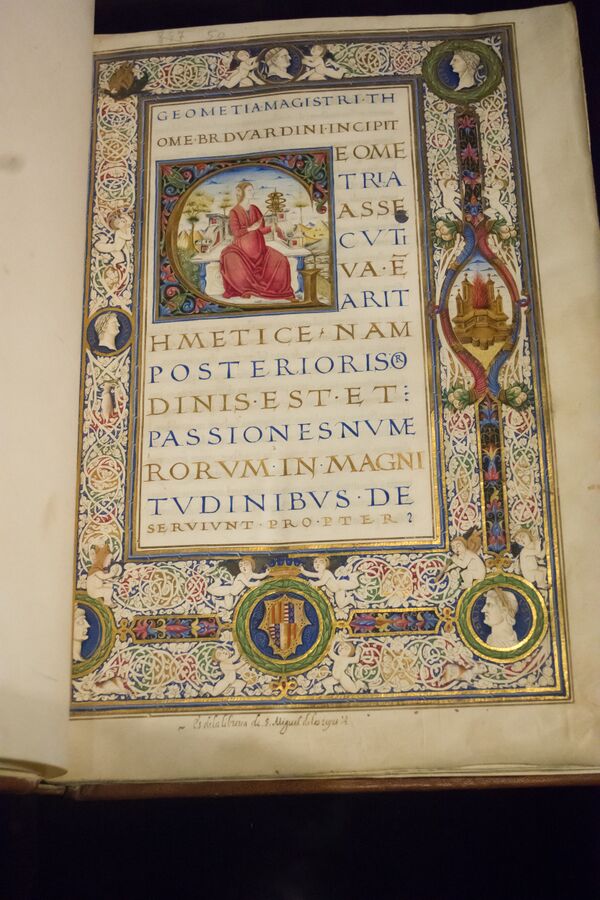 GEOMETIA·MAGISTRI·TH
OME·BRDVARDINI·INCIPIT
GEOME
TRIA
ASSE
CVTI
VA·Ē
ARIT
HMETICE·NAM
POSTERIORIS OR
DINIS·EST·ET·
PASSIONES NVME
RORVM·IN·MAGNI
TVDINIBVS·DE
SERVIVNT·PROPTER
Es de la libreria de S. Miguel de los reyes